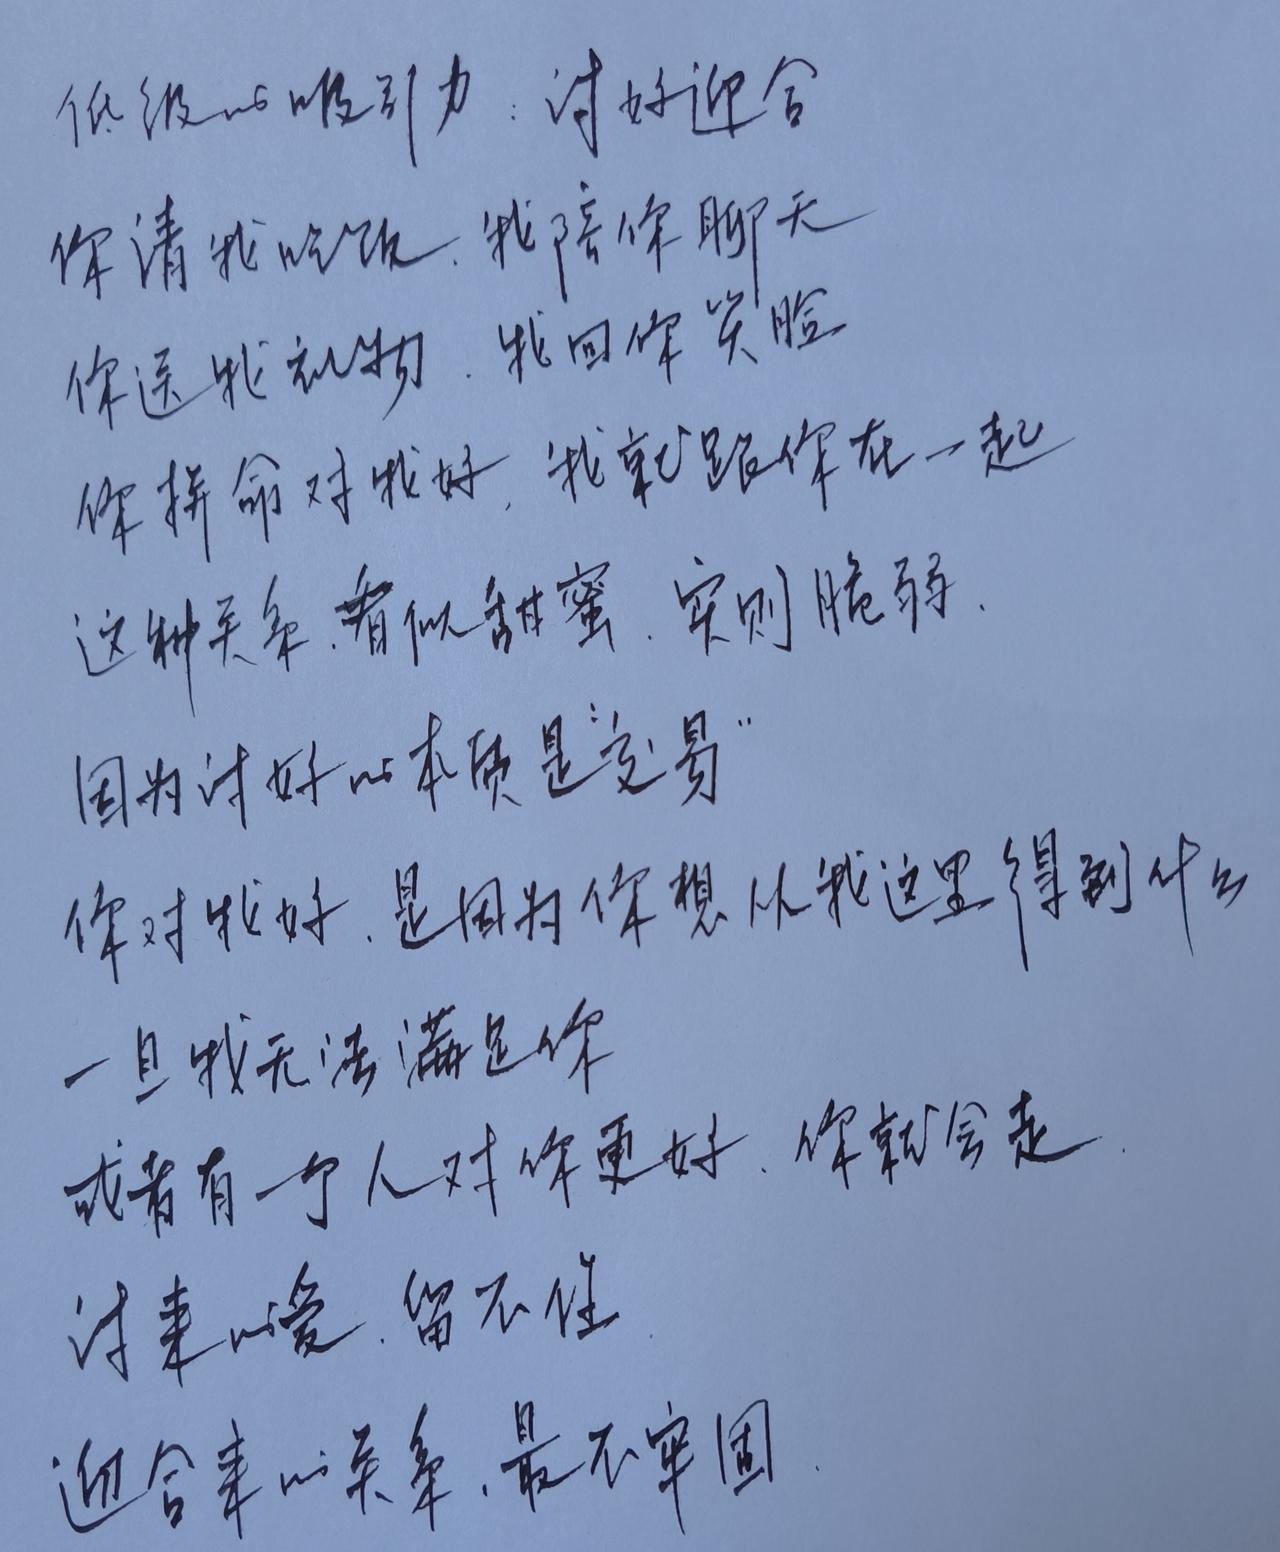 低级的吸引力：讨好迎合
你请我吃饭，我陪你聊天
你送我礼物，我回你笑脸
你拼命对我好，我就跟你在一起
这种关系，看似甜蜜，实则脆弱，
因为讨好的本质是“交易”
你对我好，是因为你想从我这里得到什么
一旦我无法满足你
或者有一个人对你更好，你就会走，
讨来的爱，留不住
迎合来的关系，最不牢固．